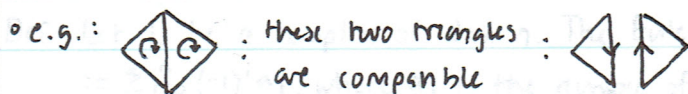 ° e.g.: : these two triangles :
are compatible